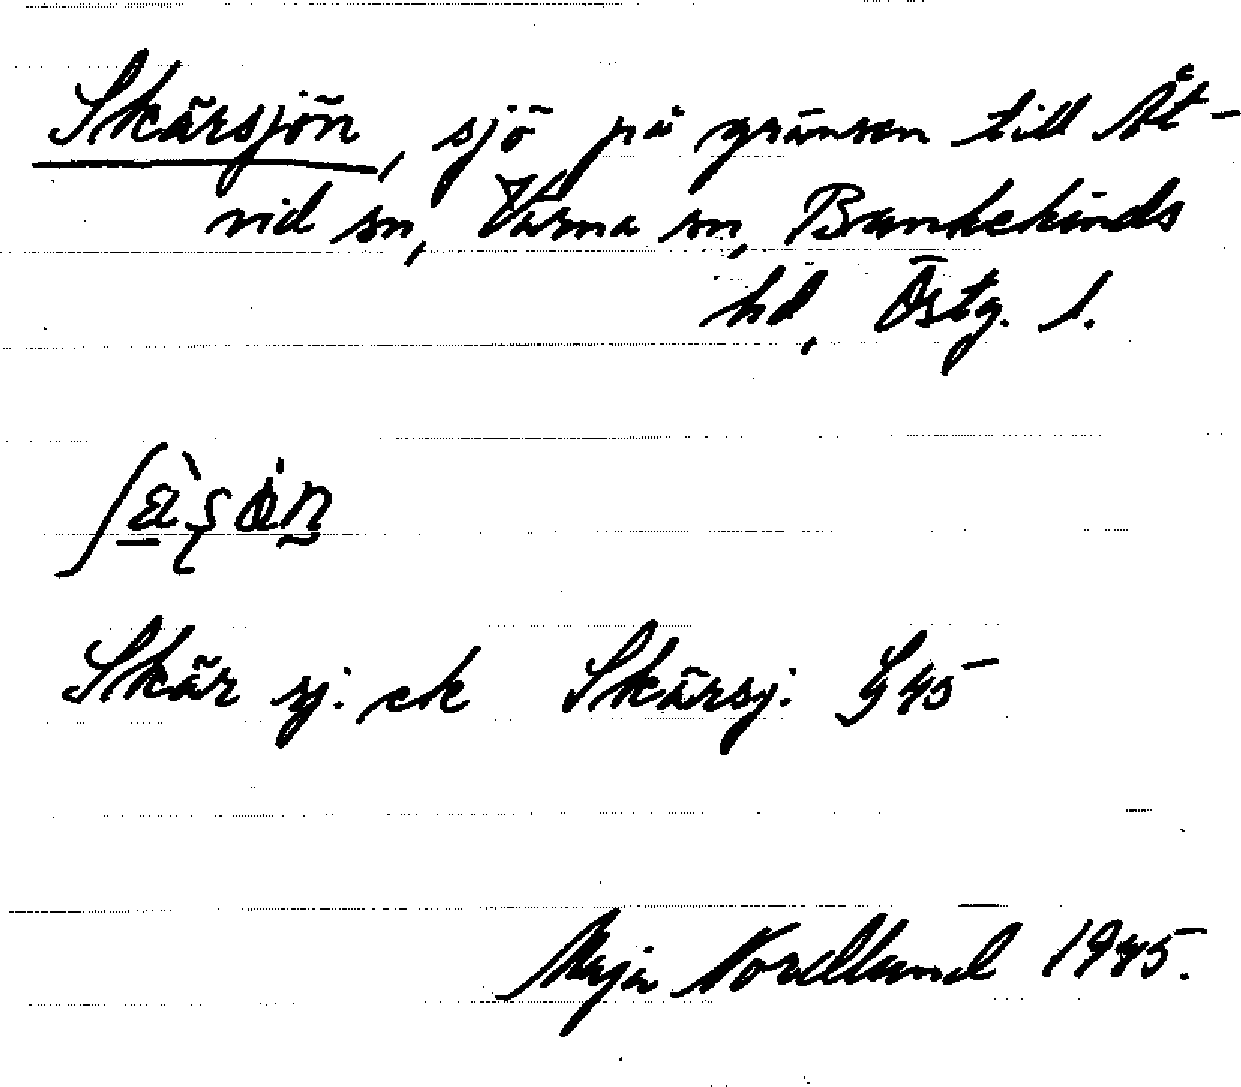 Skärsjön, sjö på gränsen till Åt-
vid sn, Värna sn, Bankekinds
hd, Östg. l.
Skär sj. ek Skärsj. G45
Maja Nordlund 1945.